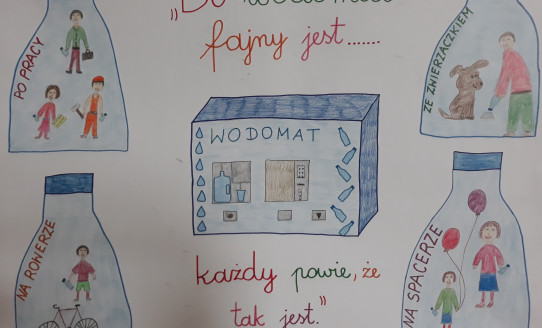 „Bo wodomat
fajny jest.......
PO PRACY
ZE ZWIERZACZKIEM
WODOMAT
NA ROWERZE
NA SPACERZE
każdy powie, że
tak jest."